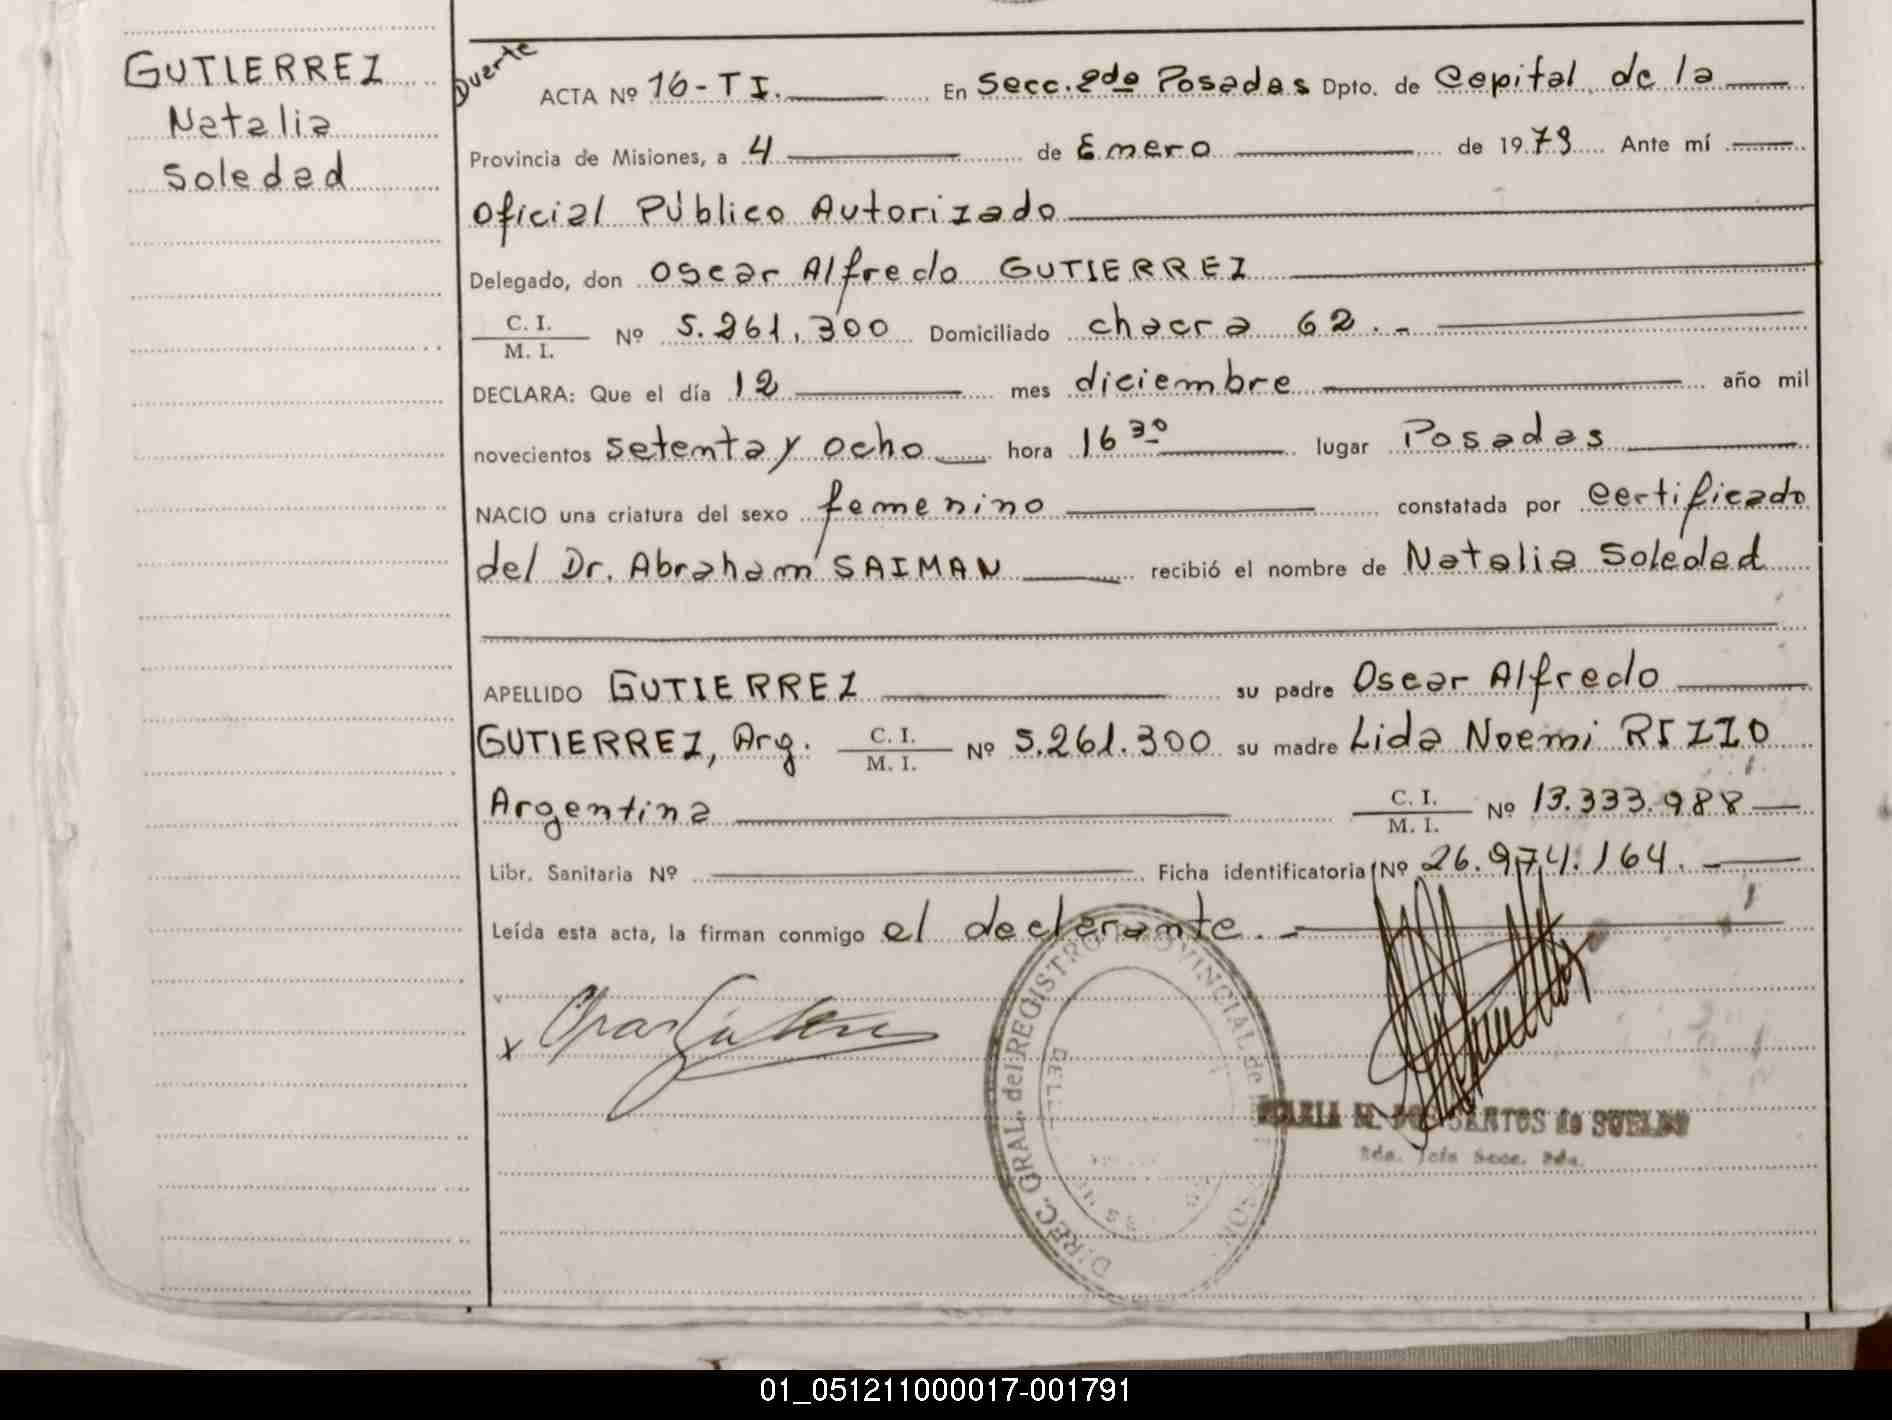 GUTIERREZ
Natalia
Soledad
Duerte
ACTA Nº 16-TI. En Secc. 2da Posadas Dpto. de Capital de la
Provincia de Misiones, a 4 de Enero de 1979 Ante mí
Oficial Público Autorizado
Delegado, don Oscar Alfredo GUTIERREZ
C. I.
M. I. Nº 5.261.300 Domiciliado chacra 62.-
DECLARA: Que el día 12 mes diciembre año mil
novecientos setenta y ocho hora 16 30 lugar Posadas
NACIO una criatura del sexo femenino constatada por certificado
del Dr. Abraham SAIMAN recibió el nombre de Natalia Soledad
APELLIDO GUTIERREZ su padre Oscar Alfredo
GUTIERREZ, Arg. C. I. M. I. Nº 5.261.300 su madre Lida Noemi RIZZO
Argentina C. I. M. I. Nº 13.333.988
Libr. Sanitaria Nº Ficha identificatoria Nº 26.974.164.
Leída esta acta, la firman conmigo el declarante.-
x
DIREC. GRAL. del REGISTRO PROVINCIAL de
DOS SANTOS de SUELDO
Secc. 2da.
01_051211000017-001791